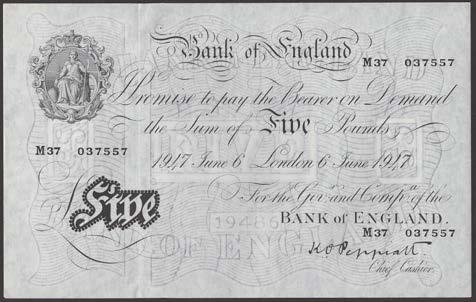 Bank of England
M37 037557
I Promise to pay the Bearer on Demand
the Sum of Five Pounds
M37 037557
1947 June 6 London 6 June 1947
For the Govr. and Compa. of the
Five
BANK OF ENGLAND.
M37 037557
K O Peppiatt
Chief Cashier.